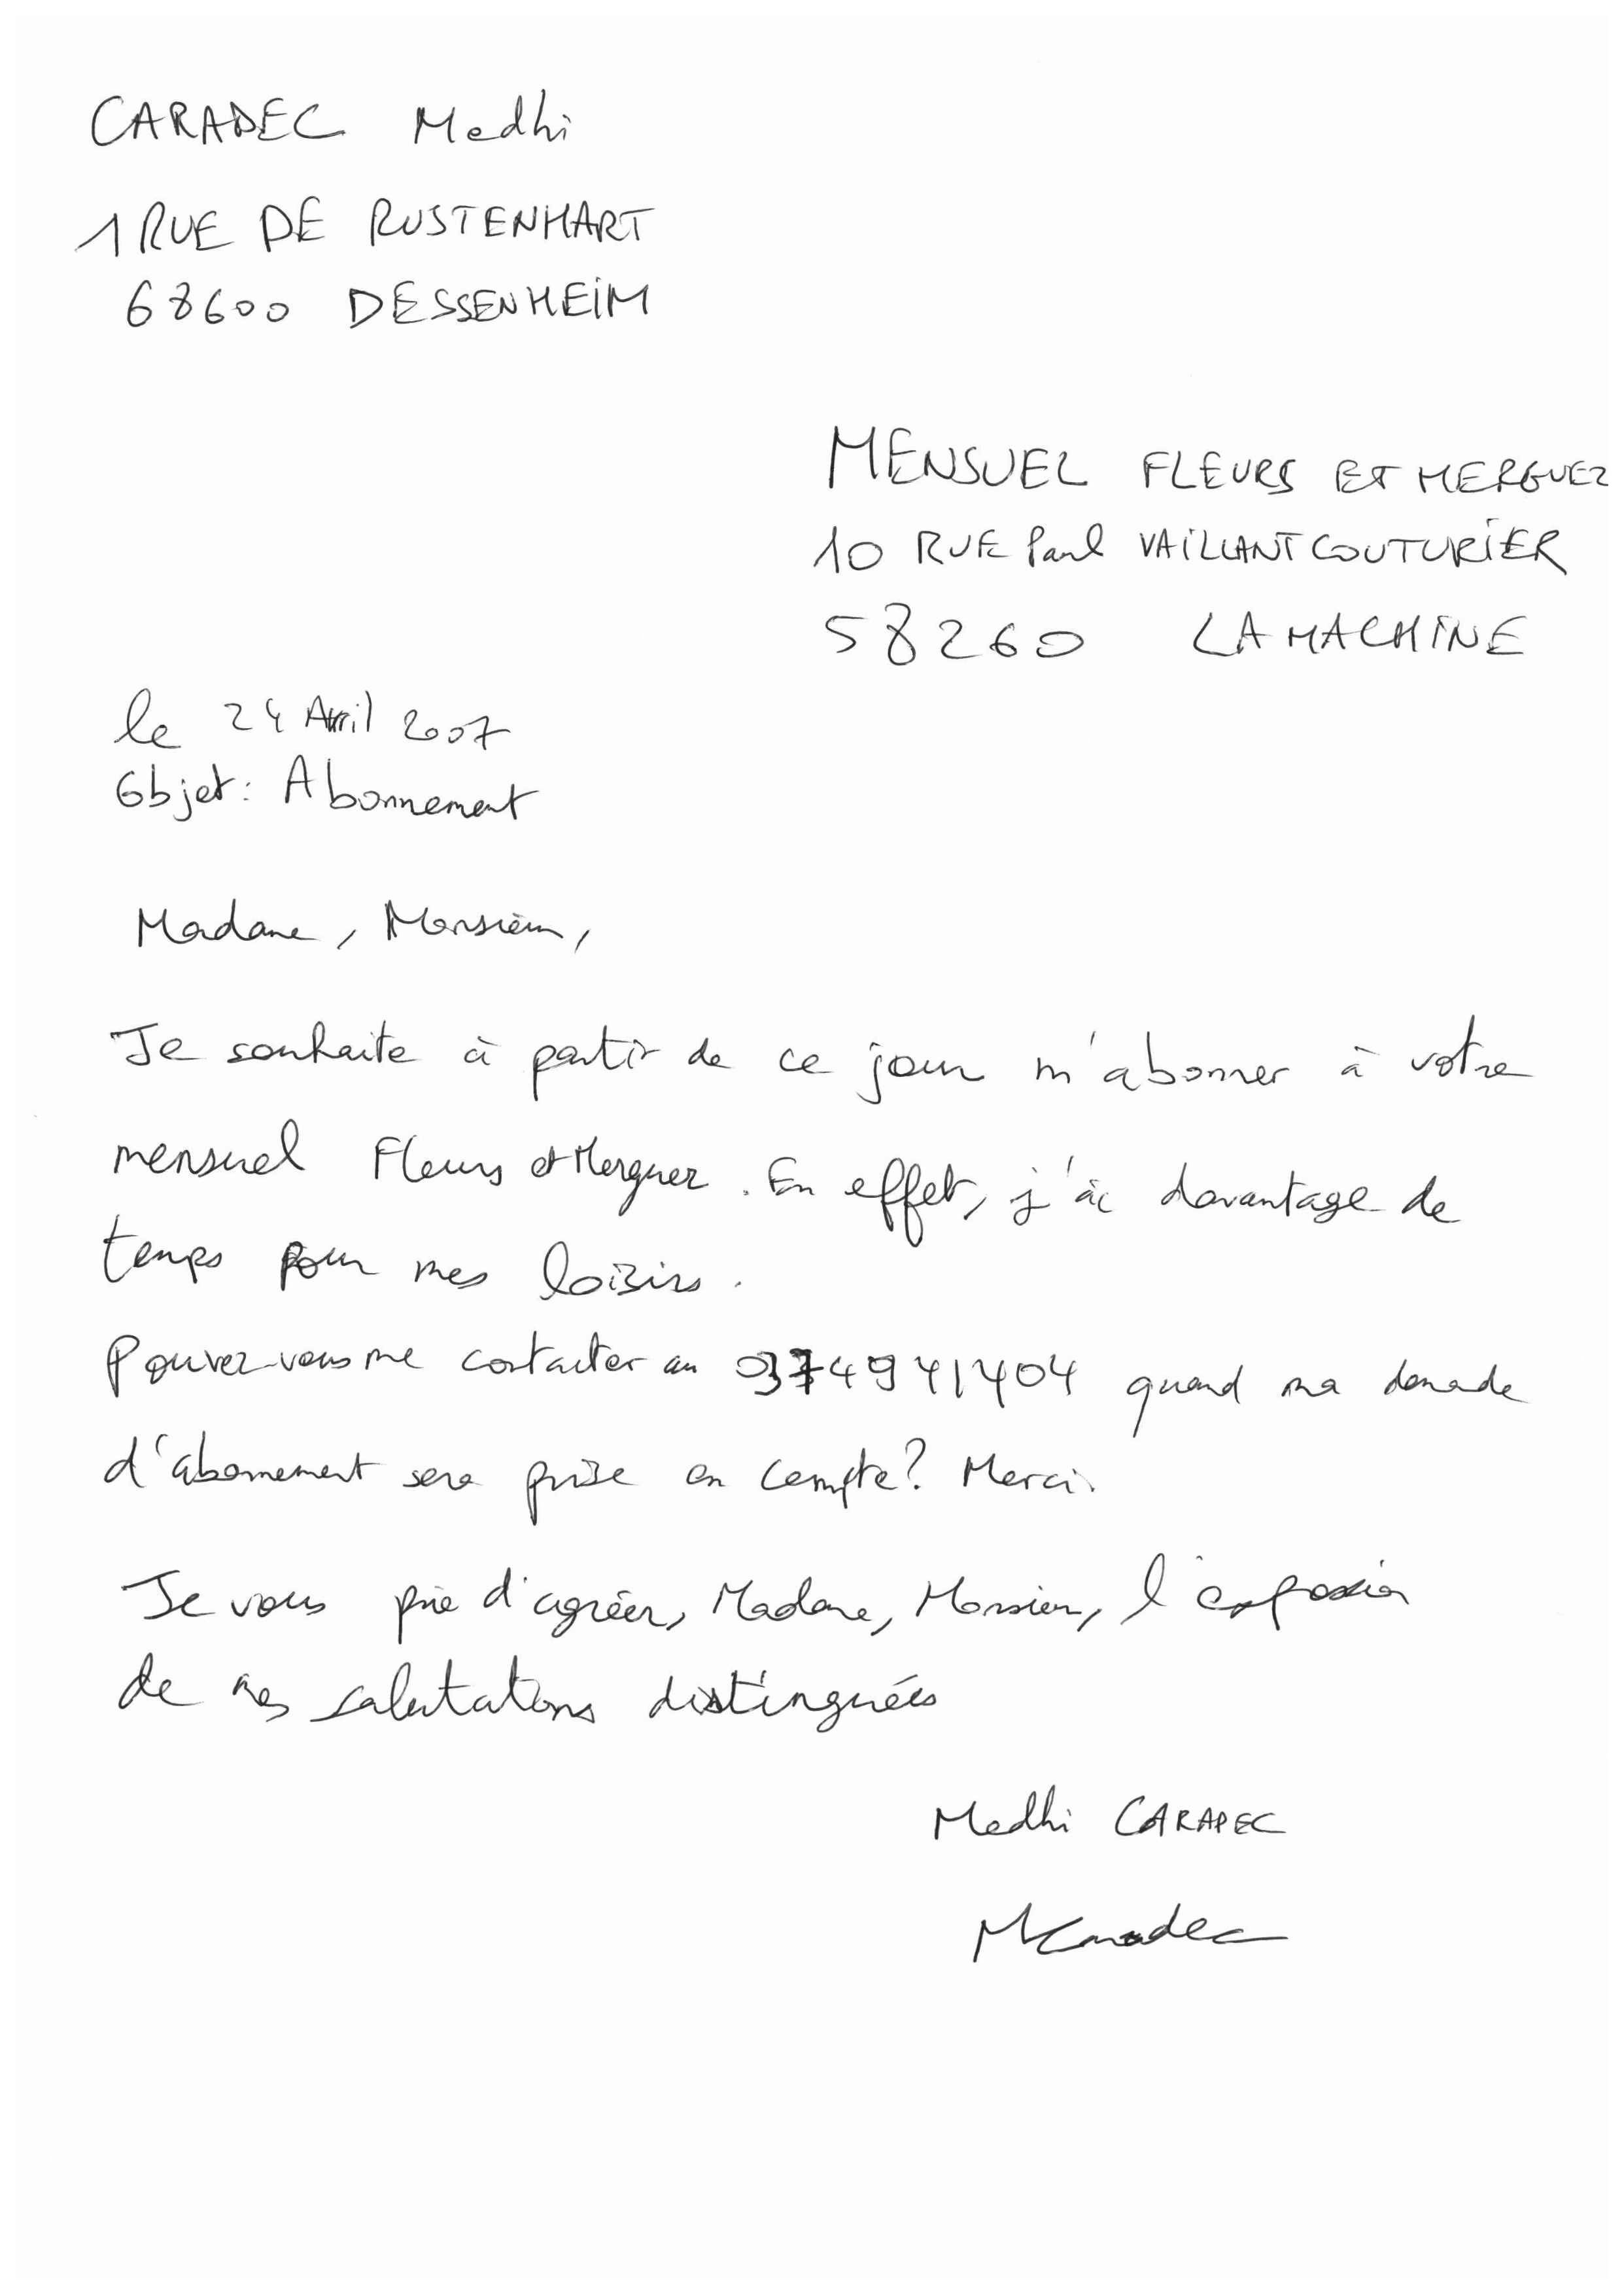 CARADEC Medhi
1 RUE DE RUSTENHART
68600 DESSENHEIM
MENSUEL FLEURS ET MERGUEZ
10 RUE Paul VAILLANT COUTURIER
58260 LA MACHINE
le 24 Avril 2007
Objet: Abonnement
Madame, Monsieur,
Je souhaite à partir de ce jour m'abonner à votre
mensuel Fleurs et Merguez. En effet, j'ai davantage de
temps pour mes loisirs.
Pouvez-vous me contacter au 0374941404 quand ma demande
d'abonnement sera prise en compte? Merci.
Je vous prie d'agréer, Madame, Monsieur, l'expression
de mes salutations distinguées
Medhi CARADEC
MCaradec